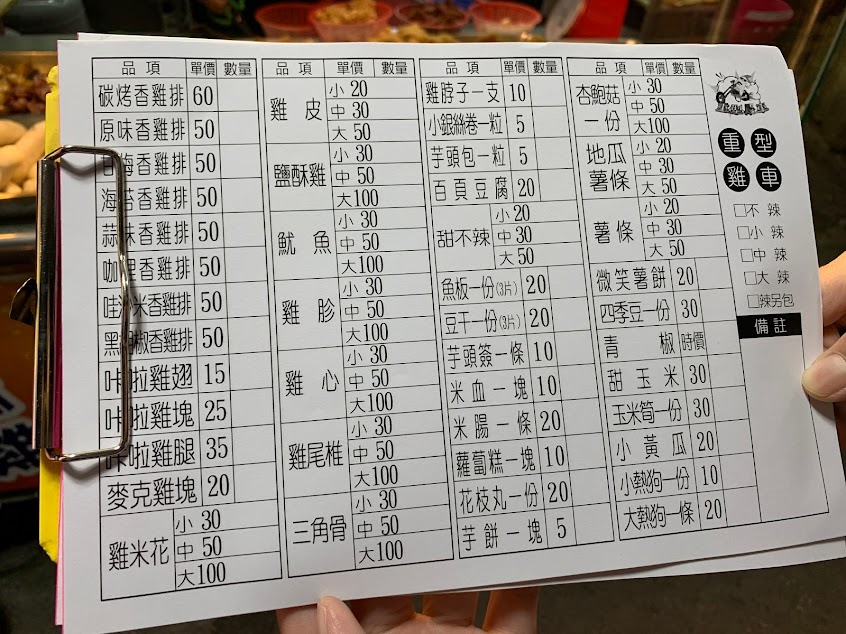 品項 單價 數量
碳烤香雞排 60
原味香雞排 50
甘梅香雞排 50
海苔香雞排 50
蒜味香雞排 50
咖哩香雞排 50
哇沙米香雞排 50
黑胡椒香雞排 50
咔啦雞翅 15
咔啦雞塊 25
咔啦雞腿 35
麥克雞塊 20
雞米花 小 30
中 50
大 100
品項 單價 數量
雞皮 小 20
中 30
大 50
鹽酥雞 小 30
中 50
大 100
魷魚 小 30
中 50
大 100
雞胗 小 30
中 50
大 100
雞心 小 30
中 50
大 100
雞尾椎 小 30
中 50
大 100
三角骨 小 30
中 50
大 100
品項 單價 數量
雞脖子一支 10
小銀絲卷一粒 5
芋頭包一粒 5
百頁豆腐 20
甜不辣 小 20
中 30
大 50
魚板一份(3片) 20
豆干一份(3片) 20
芋頭簽一條 10
米血一塊 10
米腸一條 20
蘿蔔糕一塊 10
花枝丸一份 20
芋餅一塊 5
品項 單價 數量
杏鮑菇一份 小 30
中 50
大 100
地瓜薯條 小 20
中 30
大 50
薯條 小 20
中 30
大 50
微笑薯餅 20
四季豆一份 30
青椒 時價
甜玉米 30
玉米筍一份 30
小黃瓜 20
小熱狗一份 10
大熱狗一條 20
重型
雞車
□不辣
□小辣
□中辣
□大辣
□辣另包
備註